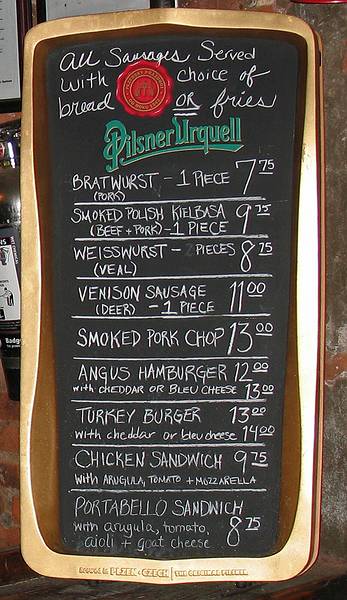 All Sausages Served
with choice of
bread OR fries
Pilsner Urquell
BRATWURST - 1 PIECE 7 75
(PORK)
SMOKED POLISH KIELBASA 9 75
(BEEF + PORK) - 1 PIECE
WEISSWURST - 2 PIECES 8 75
(VEAL)
VENISON SAUSAGE 11 00
(DEER) - 1 PIECE
SMOKED PORK CHOP 13 00
ANGUS HAMBURGER 12 00
with CHEDDAR OR BLEU CHEESE 13 00
TURKEY BURGER 13 00
with cheddar or bleu cheese 14 00
CHICKEN SANDWICH 9 75
WITH ARUGULA, TOMATO + MOZZARELLA
PORTABELLO SANDWICH
with arugula, tomato, 8 75
aioli + goat cheese
Brewed in PLZEN - CZECH | THE ORIGINAL PILSNER